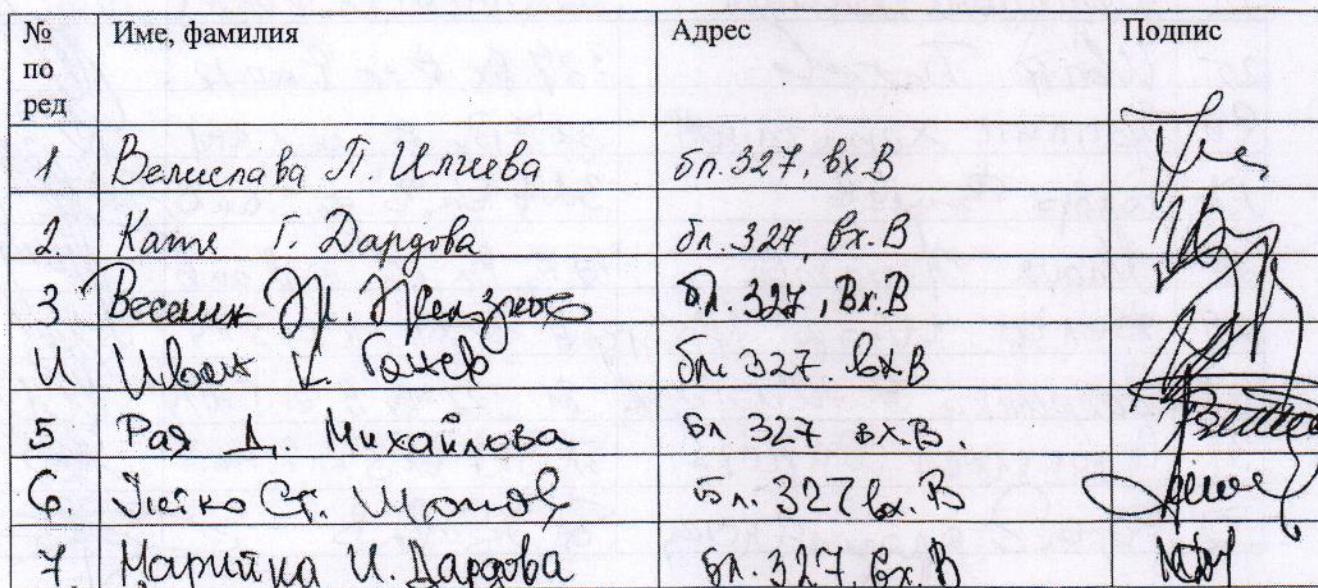 № по ред Име, фамилия Адрес Подпис
1 Велислава П. Илиева бл. 327, вх. В
2. Катя Г. Дардова бл. 327, вх. В
3 Веселин бл. 327, Вх. В
Иван Г. бл. 327. вх В
5 Рая Д. Михайлова Бл 327 вх. В.
6. Ст. Бл. 327 вх. В
7 Марийка И. Дардова Бл. 327, вх. В